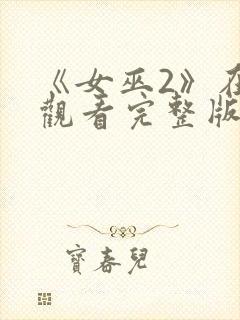 《女巫2》在
觀看完整版
寶春兒